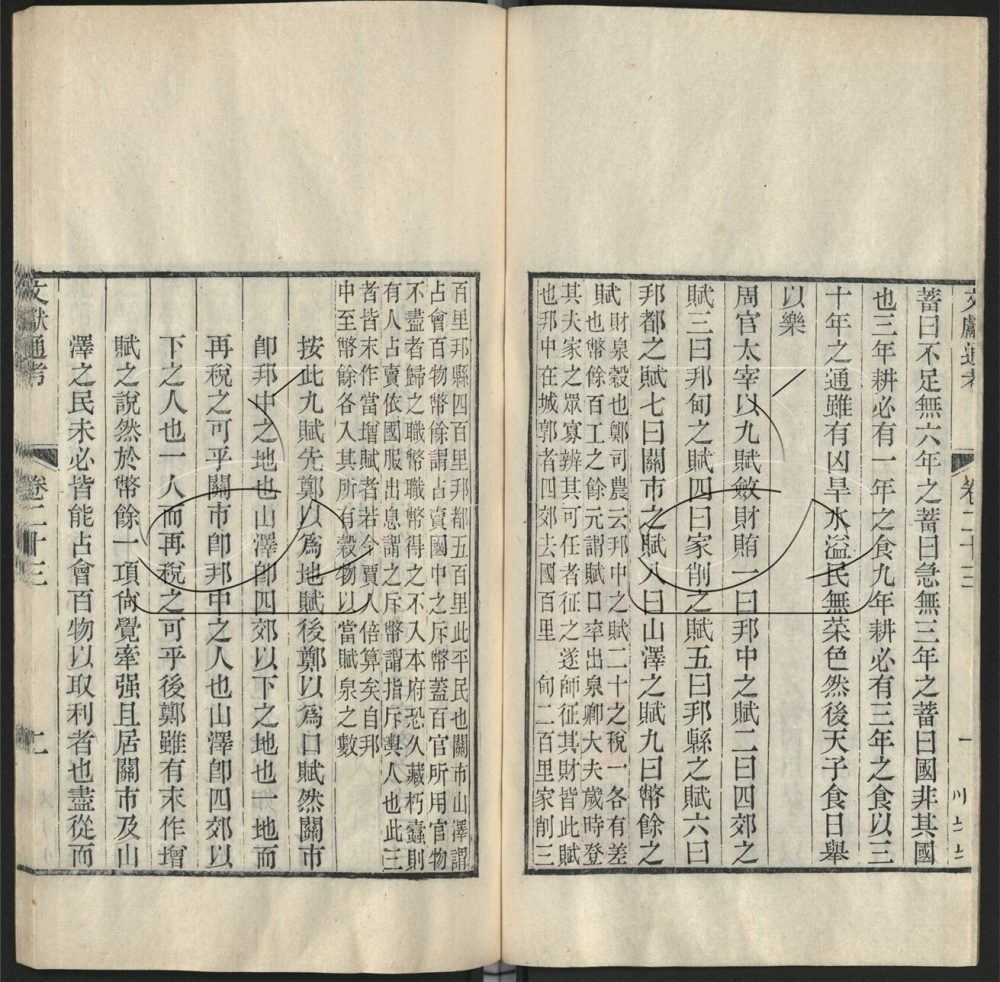 文獻通考 卷二十三 一
蓄曰不足無六年之蓄曰急無三年之蓄曰國非其國
也三年耕必有一年之食九年耕必有三年之食以三
十年之通雖有凶旱水溢民無菜色然後天子食日舉
以樂
周官太宰以九賦斂財賄一曰邦中之賦二曰四郊之
賦三曰邦甸之賦四曰家削之賦五曰邦縣之賦六曰
邦都之賦七曰關市之賦八曰山澤之賦九曰幣餘之
賦財泉穀也鄭司農云邦中之賦二十之稅一各有差
也幣餘百工之餘元謂賦口率出泉卿大夫歲時登
其夫家之眾寡辨其可任者征之遂師征其財皆此賦
也邦中在城郭者四郊去國百里甸二百里家削三
百里邦縣四百里邦都五百里此平民也關市山澤謂
占會百物幣餘謂占賣國中之斥幣蓋百官所用官物
不盡者歸之職幣職幣得之不入本府恐久藏朽蠹則
有人占賣依國服出息謂之斥幣謂指斥與人也此三
者皆末作當增賦者若今賈人倍算矣自邦
中至幣餘各入其所有穀物以當賦泉之數
按此九賦先鄭以爲地賦後鄭以爲口賦然關市
卽邦中之地也山澤卽四郊以下之地也一地而
再稅之可乎關市卽邦中之人也山澤卽四郊以
下之人也一人而再稅之可乎後鄭雖有末作增
賦之說然於幣餘一項尙覺牽强且居關市及山
澤之民未必皆能占會百物以取利者也盡從而
文獻通考 卷二十三 二